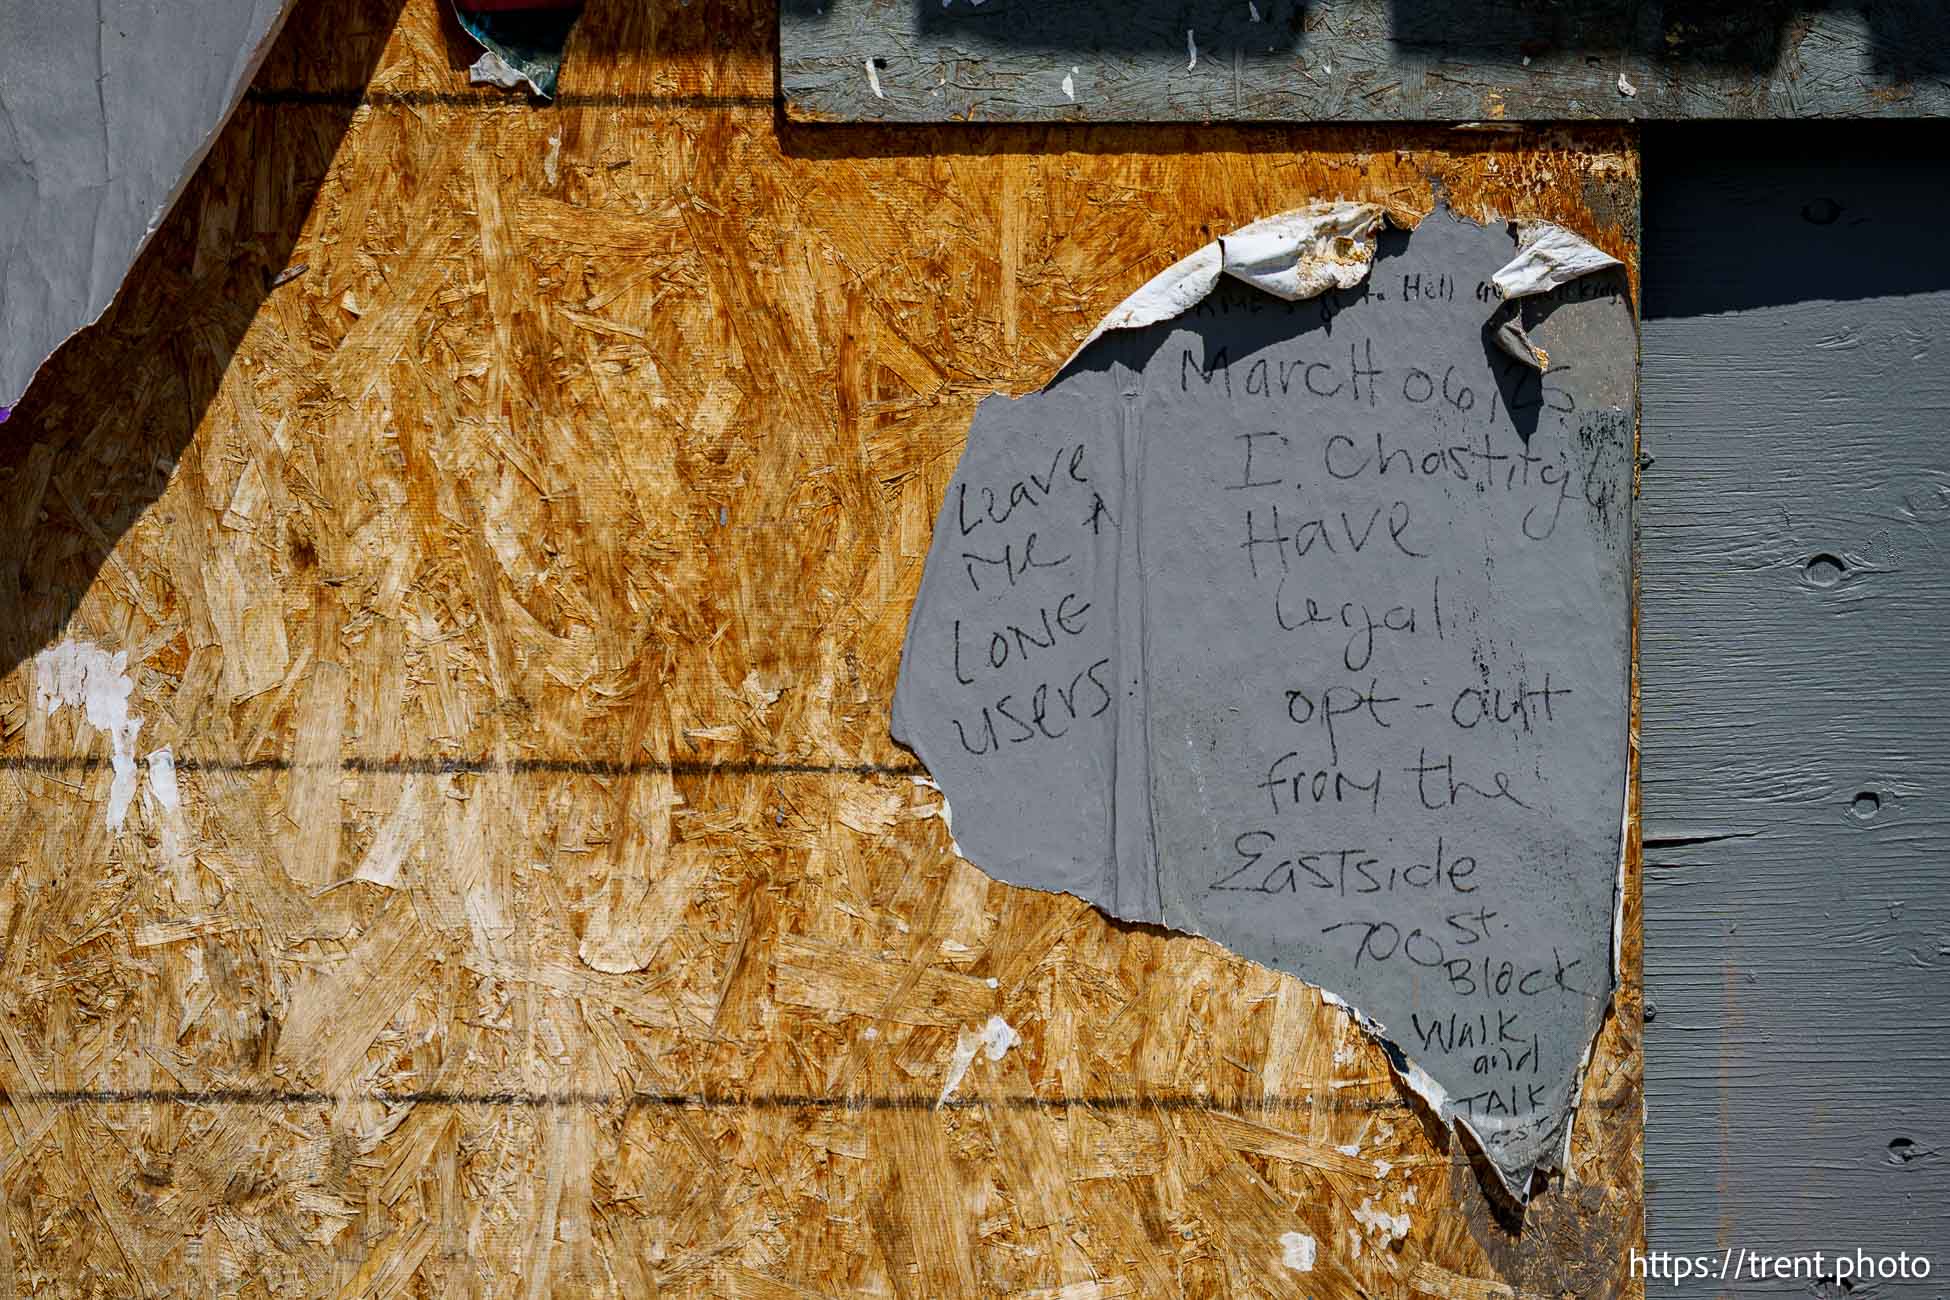 to Hell
March 06, 25
I. Chastity
Have
Legal
opt-out
from the
Eastside
700 st.
Block
Walk
and
TALK
Leave
Me A
LONE
users.
https://trent.photo